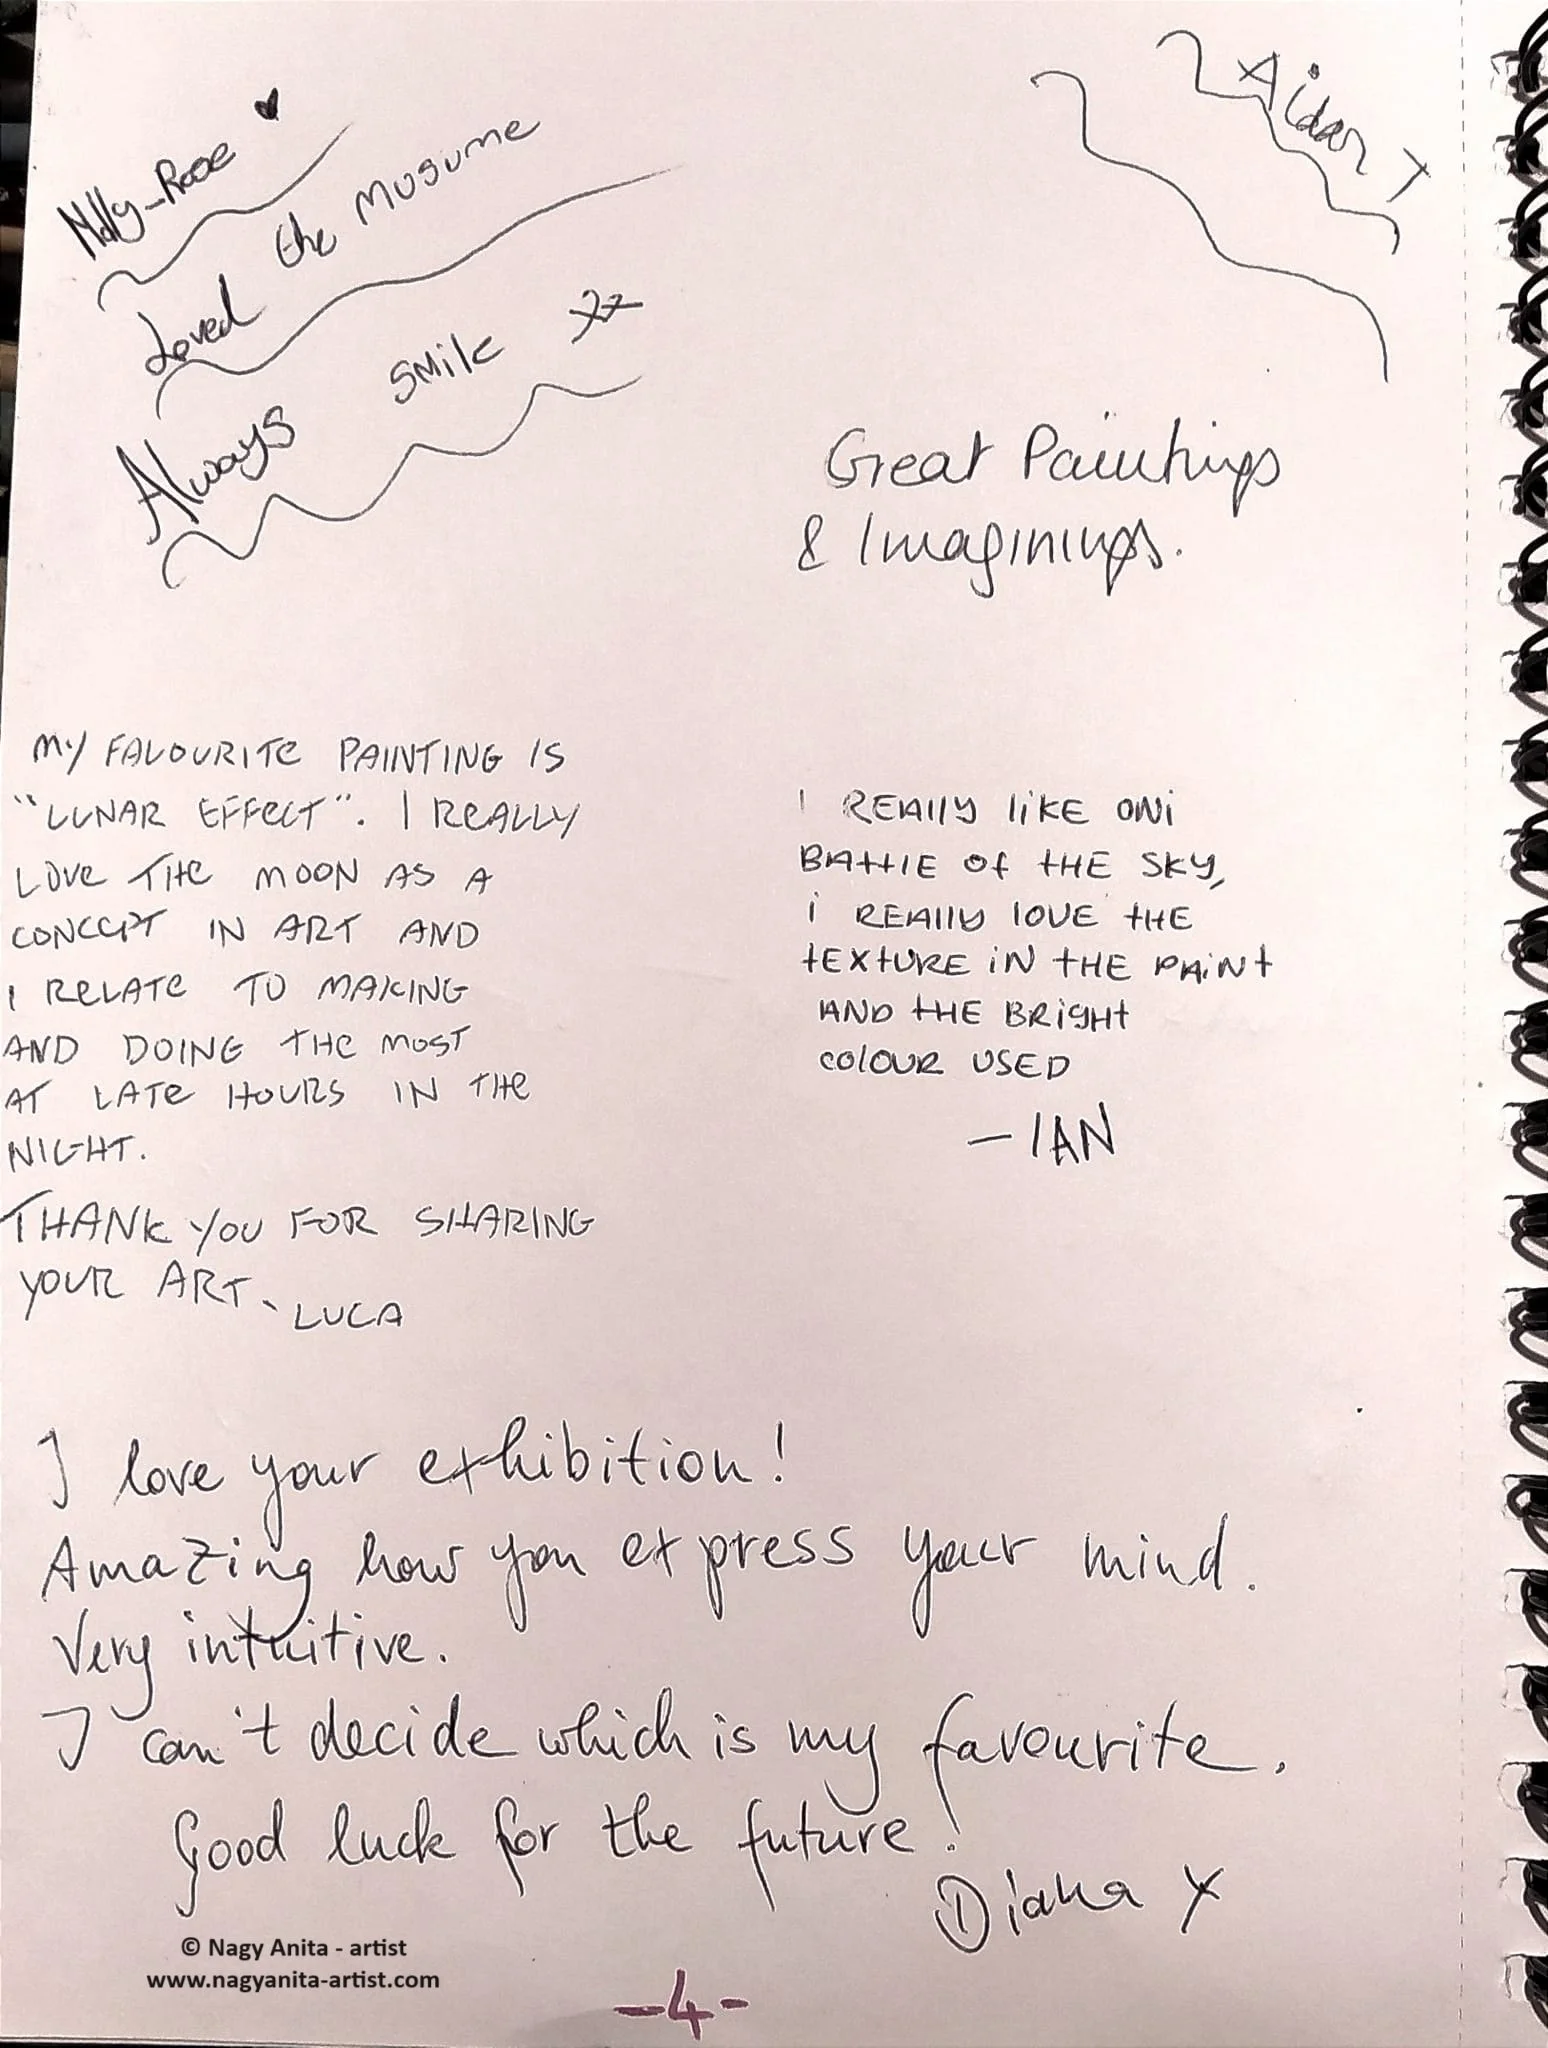 Molly-Rose
Loved the musume
Always smile xx
Aidan T
Great Paintings
& Imaginings.
MY FAVOURITE PAINTING IS
"LUNAR EFFECT". I REALLY
LOVE THE MOON AS A
CONCEPT IN ART AND
I RELATE TO MAKING
AND DOING THE MOST
AT LATE HOURS IN THE
NIGHT.
THANK YOU FOR SHARING
YOUR ART. LUCA
I REALLY LIKE ONI
BATTLE OF THE SKY,
I REALLY LOVE THE
TEXTURE IN THE PAINT
AND THE BRIGHT
COLOUR USED
– IAN
I love your exhibition!
Amazing how you express your mind.
Very intuitive.
I can't decide which is my favourite.
Good luck for the future!
Diana X
© Nagy Anita - artist
www.nagyanita-artist.com
-4-